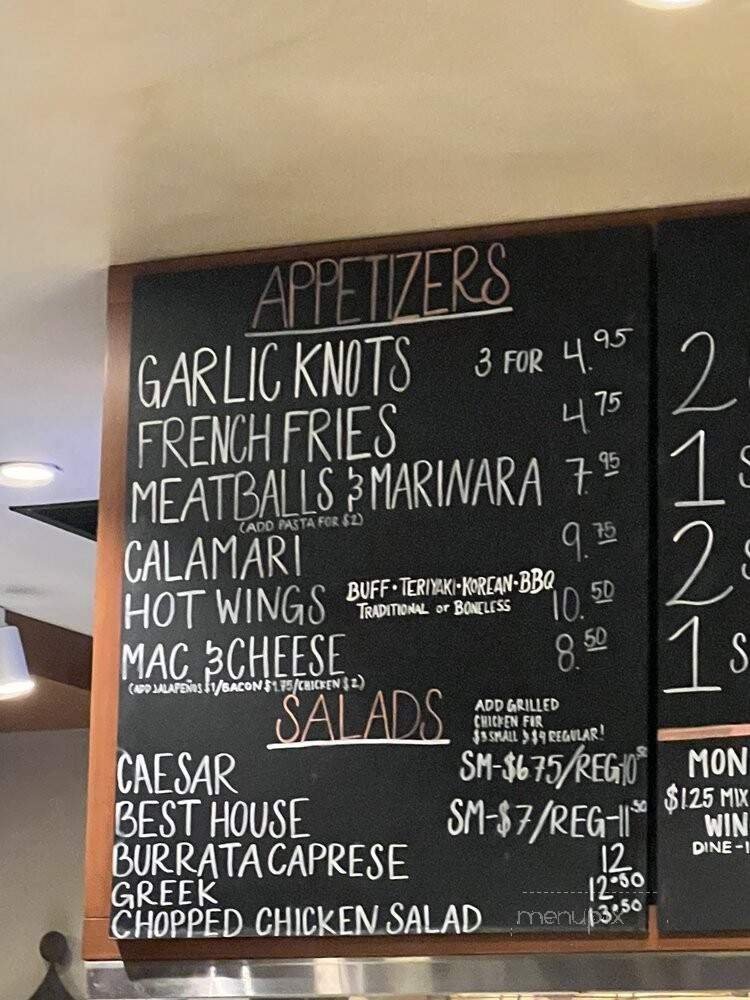 APPETIZERS
GARLIC KNOTS 3 FOR 4.95
FRENCH FRIES 4.75
MEATBALLS & MARINARA 7.95
(ADD PASTA FOR $2)
CALAMARI 9.75
HOT WINGS BUFF•TERIYAKI•KOREAN•BBQ 10.50
TRADITIONAL or BONELESS
MAC & CHEESE 8.50
(ADD JALAPEÑOS $1/BACON $1.75/CHICKEN $2)
SALADS
ADD GRILLED
CHICKEN FOR
$3 SMALL & $4 REGULAR!
CAESAR SM-$6.75/REG-10.50
BEST HOUSE SM-$7/REG-11.50
BURRATA CAPRESE 12
GREEK 12.50
CHOPPED CHICKEN SALAD 13.50
menupix
2
1 S
2 S
1 S
MON
$1.25 MIX
WIN
DINE-I